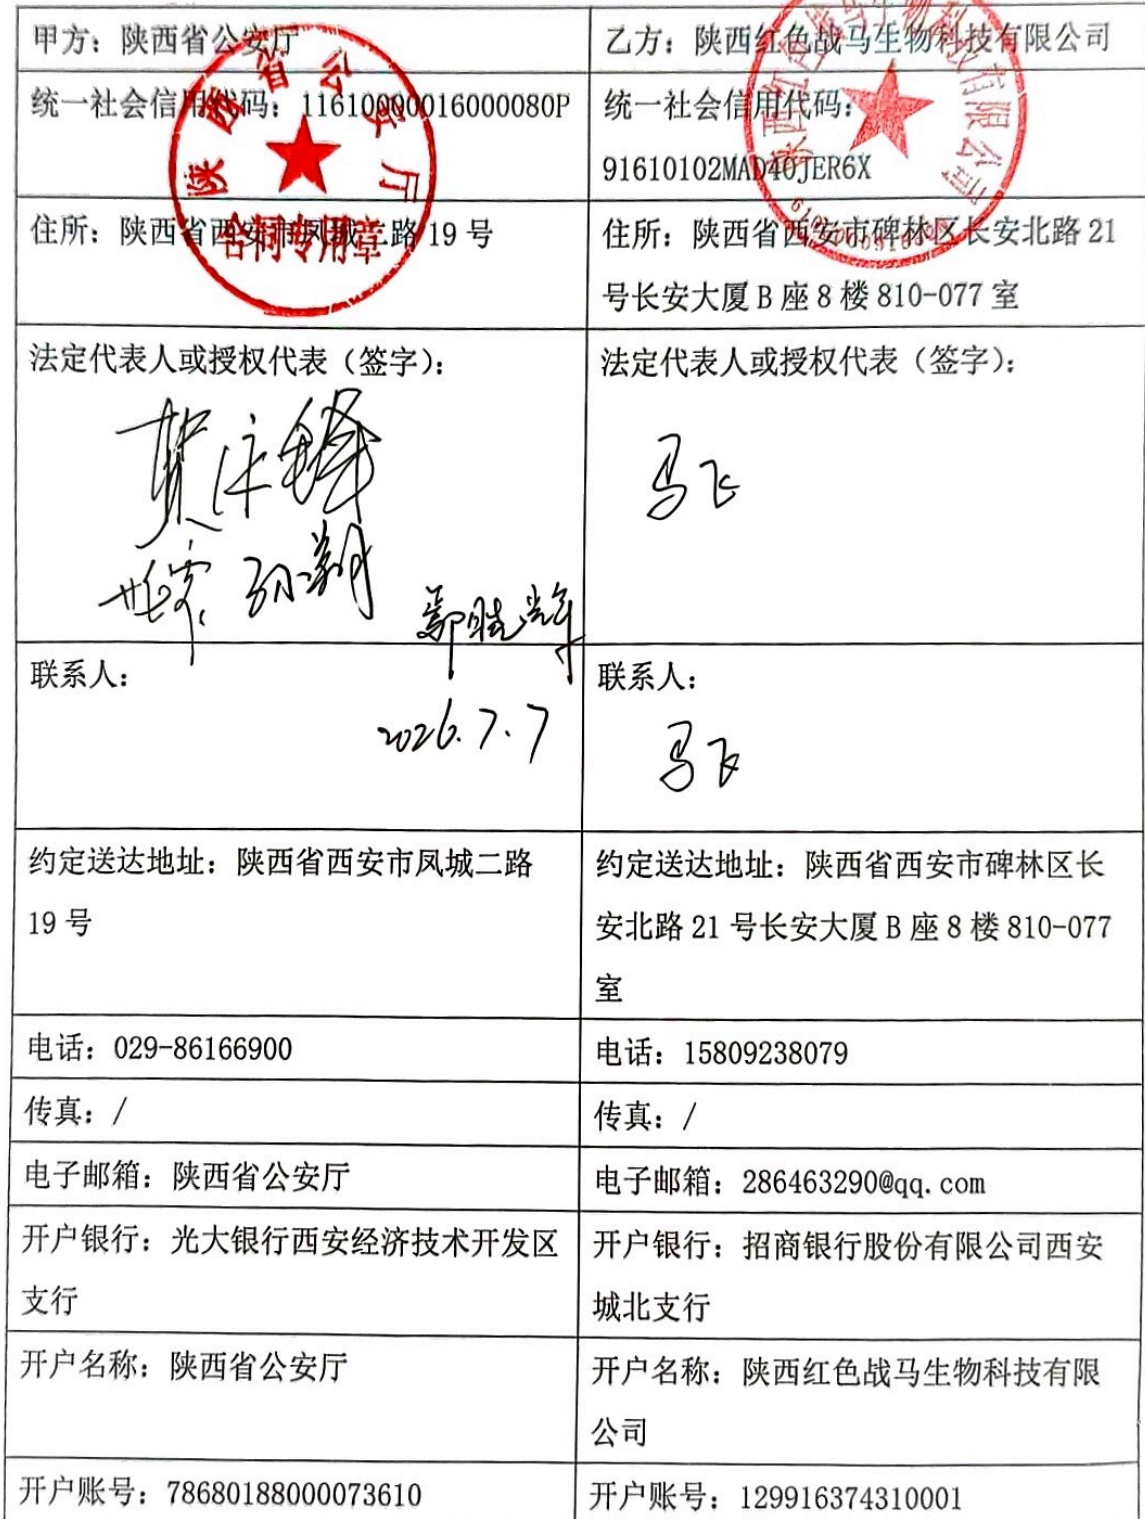 甲方：陕西省公安厅
乙方：陕西红色战马生物科技有限公司
统一社会信用代码：11610000016000080P
统一社会信用代码：
91610102MAD40JER6X
住所：陕西省西安市凤城二路 19 号
住所：陕西省西安市碑林区长安北路 21
号长安大厦 B 座 8 楼 810-077 室
陕西省公安厅
合同专用章
陕西红色战马生物科技有限公司
法定代表人或授权代表（签字）：
法定代表人或授权代表（签字）：
马飞
孙翔
鄢晓辉
联系人：
2026.7.7
联系人：
马飞
约定送达地址：陕西省西安市凤城二路
19 号
约定送达地址：陕西省西安市碑林区长
安北路 21 号长安大厦 B 座 8 楼 810-077
室
电话：029-86166900
电话：15809238079
传真：/
传真：/
电子邮箱：陕西省公安厅
电子邮箱：286463290@qq.com
开户银行：光大银行西安经济技术开发区
支行
开户银行：招商银行股份有限公司西安
城北支行
开户名称：陕西省公安厅
开户名称：陕西红色战马生物科技有限
公司
开户账号：78680188000073610
开户账号：129916374310001